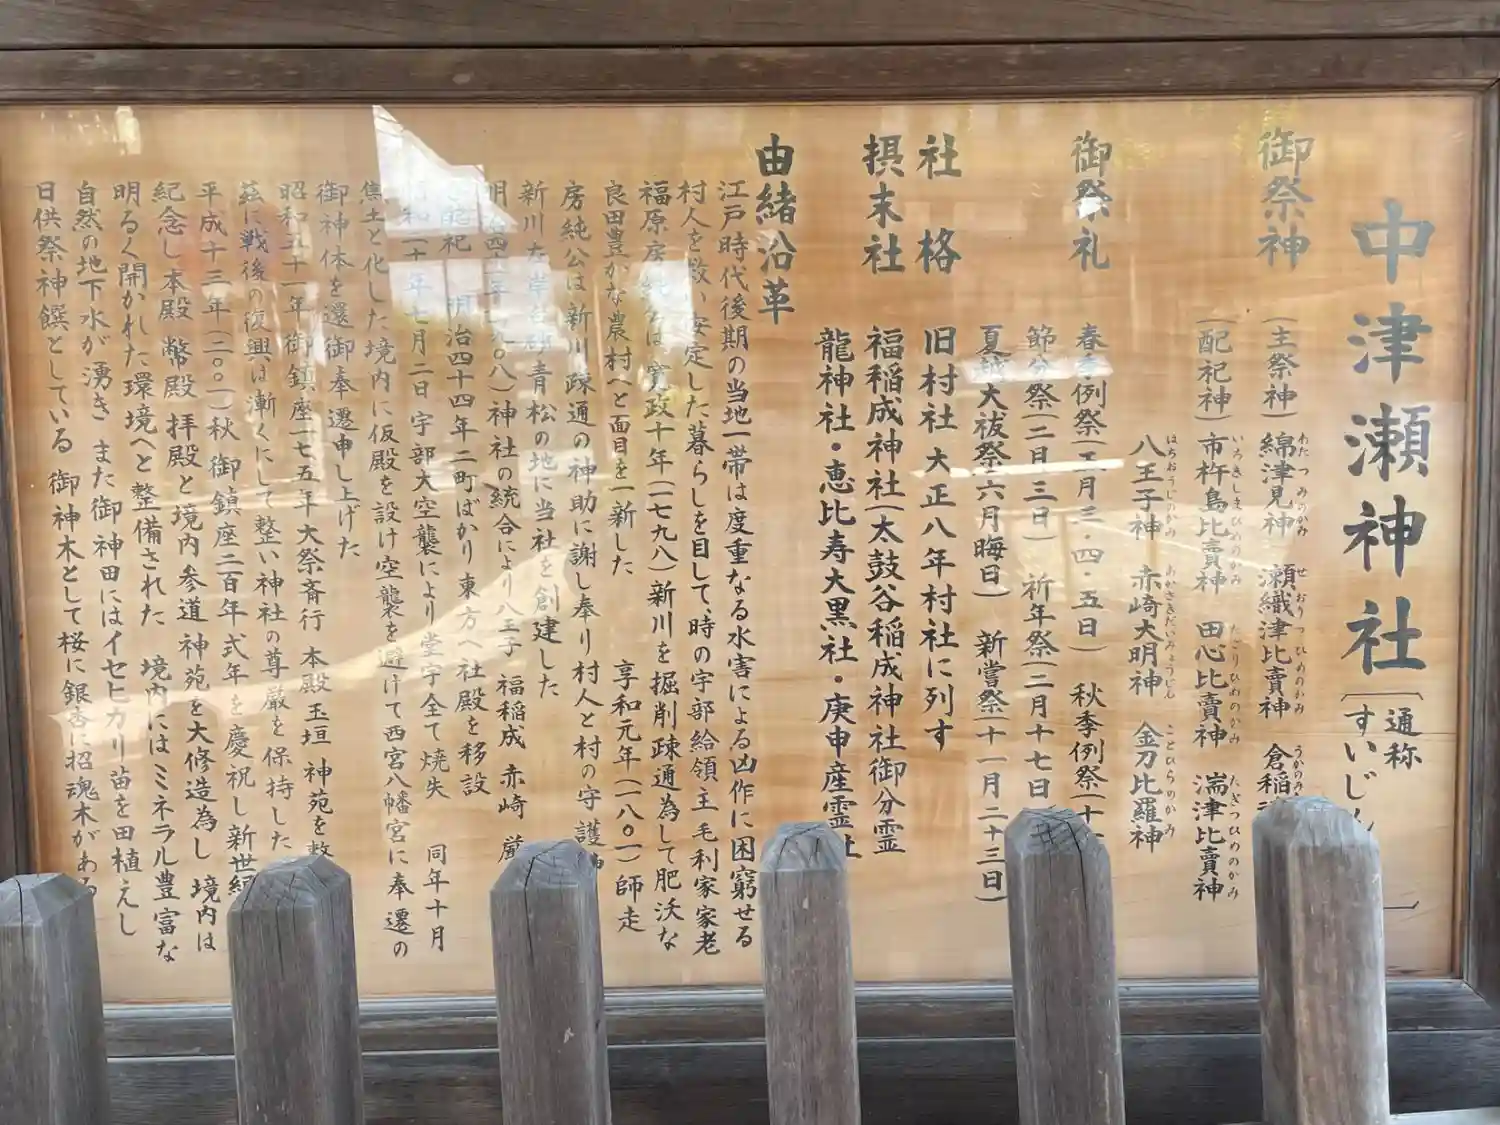 中津瀬神社
〔通称
すいじん
御祭神
(主祭神)綿津見神 瀬織津比賣神 倉稲
わたつみのかみ せおりつひめのかみ うかのみ
(配祀神)市杵島比賣神 田心比賣神 湍津比賣神
いちきしまひめのかみ たごりひめのかみ たぎつひめのかみ
八王子神 赤崎大明神 金刀比羅神
はちおうじのかみ あかさきだいみょうじん ことひらのかみ
御祭礼
春季例祭(五月三・四・五日) 秋季例祭(十
節分祭(二月三日) 祈年祭(二月十七日
夏越大祓祭六月晦日) 新嘗祭(十一月二十三日)
社格
旧村社 大正八年村社に列す
摂末社
福稲成神社(太鼓谷稲成神社御分霊
龍神社・恵比寿大黒社・庚申産霊社
由緒沿革
江戸時代後期の当地一帯は度重なる水害による凶作に困窮せる
村人を救い安定した暮らしを目して、時の宇部給領主毛利家家老
福原房純公は寛政十年(一七九八)新川を掘削疎通為して肥沃な
良田豊かな農村へと面目を一新した 享和元年(一八〇一)師走
房純公は新川疎通の神助に謝し奉り村人と村の守護神
新川左岸 青松の地に当社を創建した
明治四十 年(一九〇八)神社の統合により八王子 福稲成 赤崎 厳
配祀 明治四十四年二町ばかり東方へ社殿を移設
昭和二十年七月二日宇部大空襲により堂宇全て焼失 同年十月
焦土と化した境内に仮殿を設け空襲を避けて西宮八幡宮に奉遷の
御神体を還御奉遷申し上げた
昭和五十一年御鎮座一七五年大祭斎行 本殿玉垣神苑を整
茲に戦後の復興は漸くにして整い神社の尊厳を保持した
平成十三年(二〇〇一)秋御鎮座二百年式年を慶祝し新世紀
紀念し本殿幣殿拝殿と境内参道神苑を大修造為し 境内は
明るく開かれた環境へと整備された 境内にはミネラル豊富な
自然の地下水が湧き また御神田にはイセヒカリ苗を田植えし
日供祭神饌としている 御神木として桜に銀杏に招魂木がある